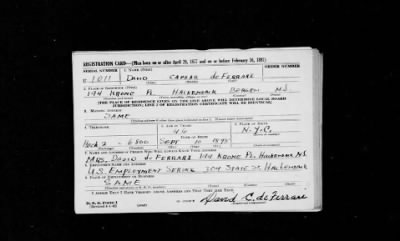 REGISTRATION CARD—(Men born on or after April 28, 1877 and on or before February 16, 1897)
SERIAL NUMBER 1. NAME (Print)
U 1011 DAVID CAESAR de FERRARI
2. PLACE OF RESIDENCE (Print)
194 KRONE PL HACKENSACK BERGEN N.J.
[THE PLACE OF RESIDENCE GIVEN ON THE LINE ABOVE WILL DETERMINE LOCAL BOARD
JURISDICTION; LINE 2 OF REGISTRATION CERTIFICATE WILL BE IDENTICAL]
3. MAILING ADDRESS
SAME
4. TELEPHONE 5. AGE IN YEARS 6. PLACE OF BIRTH
46 N.Y.C.
DATE OF BIRTH
HACK 2 - 6800 SEPT 10 1895
7. NAME AND ADDRESS OF PERSON WHO WILL ALWAYS KNOW YOUR ADDRESS
MRS. DAVID de FERRARI 194 KRONE PL. HACKENSACK N.J.
8. EMPLOYER'S NAME AND ADDRESS
U.S. EMPLOYMENT SERVICE STATE ST. HACKENSACK
9. PLACE OF EMPLOYMENT OR BUSINESS
SAME
I AFFIRM THAT I HAVE VERIFIED ABOVE ANSWERS AND THAT THEY ARE TRUE.
D. S. S. Form 1
David C. de Ferrari